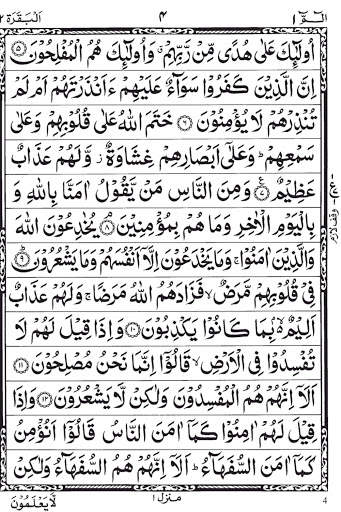 الٓمّٓ ١ ٤ اَلْبَقَرَة ٢
اُولٰٓئِكَ عَلٰى هُدًى مِّنْ رَّبِّهِمْ ۗ وَاُولٰٓئِكَ هُمُ الْمُفْلِحُوْنَ ۝٥
اِنَّ الَّذِيْنَ كَفَرُوْا سَوَآءٌ عَلَيْهِمْ ءَاَنْذَرْتَهُمْ اَمْ لَمْ
تُنْذِرْهُمْ لَا يُؤْمِنُوْنَ ۝٦ خَتَمَ اللهُ عَلٰى قُلُوْبِهِمْ وَعَلٰى
سَمْعِهِمْ ؕ وَعَلٰٓى اَبْصَارِهِمْ غِشَاوَةٌ ز وَّلَهُمْ عَذَابٌ
عَظِيْمٌ ۝٧ وَمِنَ النَّاسِ مَنْ يَّقُوْلُ اٰمَنَّا بِاللهِ وَ
بِالْيَوْمِ الْاٰخِرِ وَمَا هُمْ بِمُؤْمِنِيْنَ ۝٨ يُخٰدِعُوْنَ اللهَ
وَالَّذِيْنَ اٰمَنُوْا ۚ وَمَا يَخْدَعُوْنَ اِلَّآ اَنْفُسَهُمْ وَمَا يَشْعُرُوْنَ ۝٩
فِيْ قُلُوْبِهِمْ مَّرَضٌ ۙ فَزَادَهُمُ اللهُ مَرَضًا ۚ وَلَهُمْ عَذَابٌ
اَلِيْمٌ ۢ ۙ بِمَا كَانُوْا يَكْذِبُوْنَ ۝١٠ وَاِذَا قِيْلَ لَهُمْ لَا
تُفْسِدُوْا فِي الْاَرْضِ ۙ قَالُوْٓا اِنَّمَا نَحْنُ مُصْلِحُوْنَ ۝١١
اَلَآ اِنَّهُمْ هُمُ الْمُفْسِدُوْنَ وَلٰكِنْ لَّا يَشْعُرُوْنَ ۝١٢ وَاِذَا
قِيْلَ لَهُمْ اٰمِنُوْا كَمَآ اٰمَنَ النَّاسُ قَالُوْٓا اَنُؤْمِنُ
كَمَآ اٰمَنَ السُّفَهَآءُ ؕ اَلَآ اِنَّهُمْ هُمُ السُّفَهَآءُ وَلٰكِنْ
لَّا يَعْلَمُوْنَ منزل ١ 4
وقف لازم